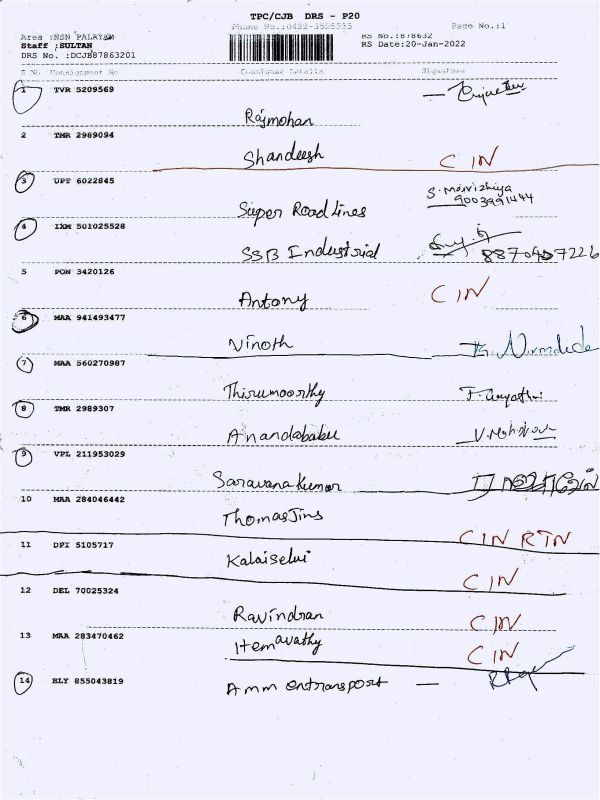 TPC/CJB DRS - P20
Phone No.:0422-3505535 Page No.:1
Area :NSN PALAYAM RS No.:878632
Staff :SULTAN RS Date:20-Jan-2022
DRS No. :DCJB87863201
S No Consignment No Consignee Details Signature
1 TVR 5209569
Rajmohan
2 TMR 2989094
Shandeesh CIN
3 UPT 6022845 S. Manvizhiya
Super Road Lines 9003991444
4 IXM 501025528
SSB Industrial
5 PON 3420126
Antony CIN
6 MAA 941493477
Vinoth
7 MAA 560270987
Thirumoorthy
8 TMR 2989307
Anandababu
9 VPL 211953029
Saravana Kumar
10 MAA 284046442
Thomas Jins CIN RTN
11 DPI 5105717
Kalaiselvi CIN
12 DEL 70025324
Ravindran CIN
13 MAA 283470462
Hemavathy CIN
14 BLY 855043819
Amm entransport